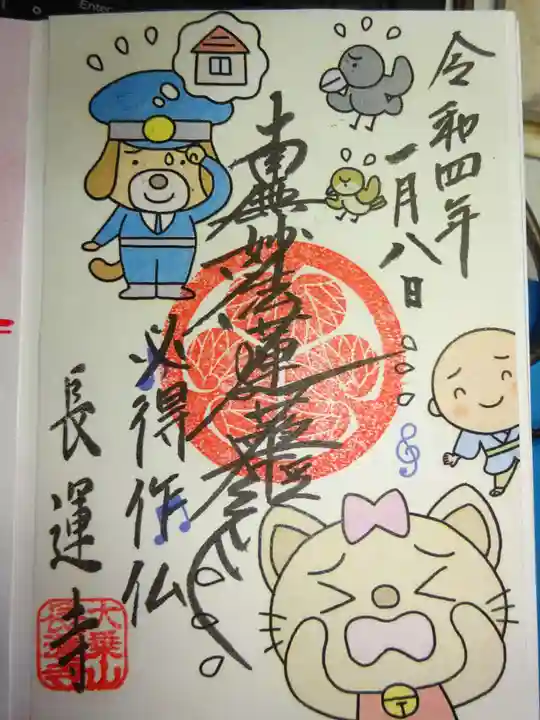 令和四年
一月八日
南無妙法蓮華経
必得作仏
長運寺
大乗山
長運寺
T
Enter